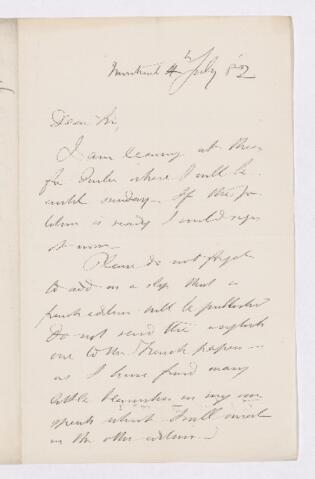 Montreal 4th July 82
Dear Sir,
I am leaving at three
for Quebec where I will be
until Sunday. If the
is ready I could sign
it now.
Please do not forget
to add on a slip that a
french edition will be published
Do not send the english
one to the French papers
as I have found many
little in my own
speech which I will correct
in the other edition.